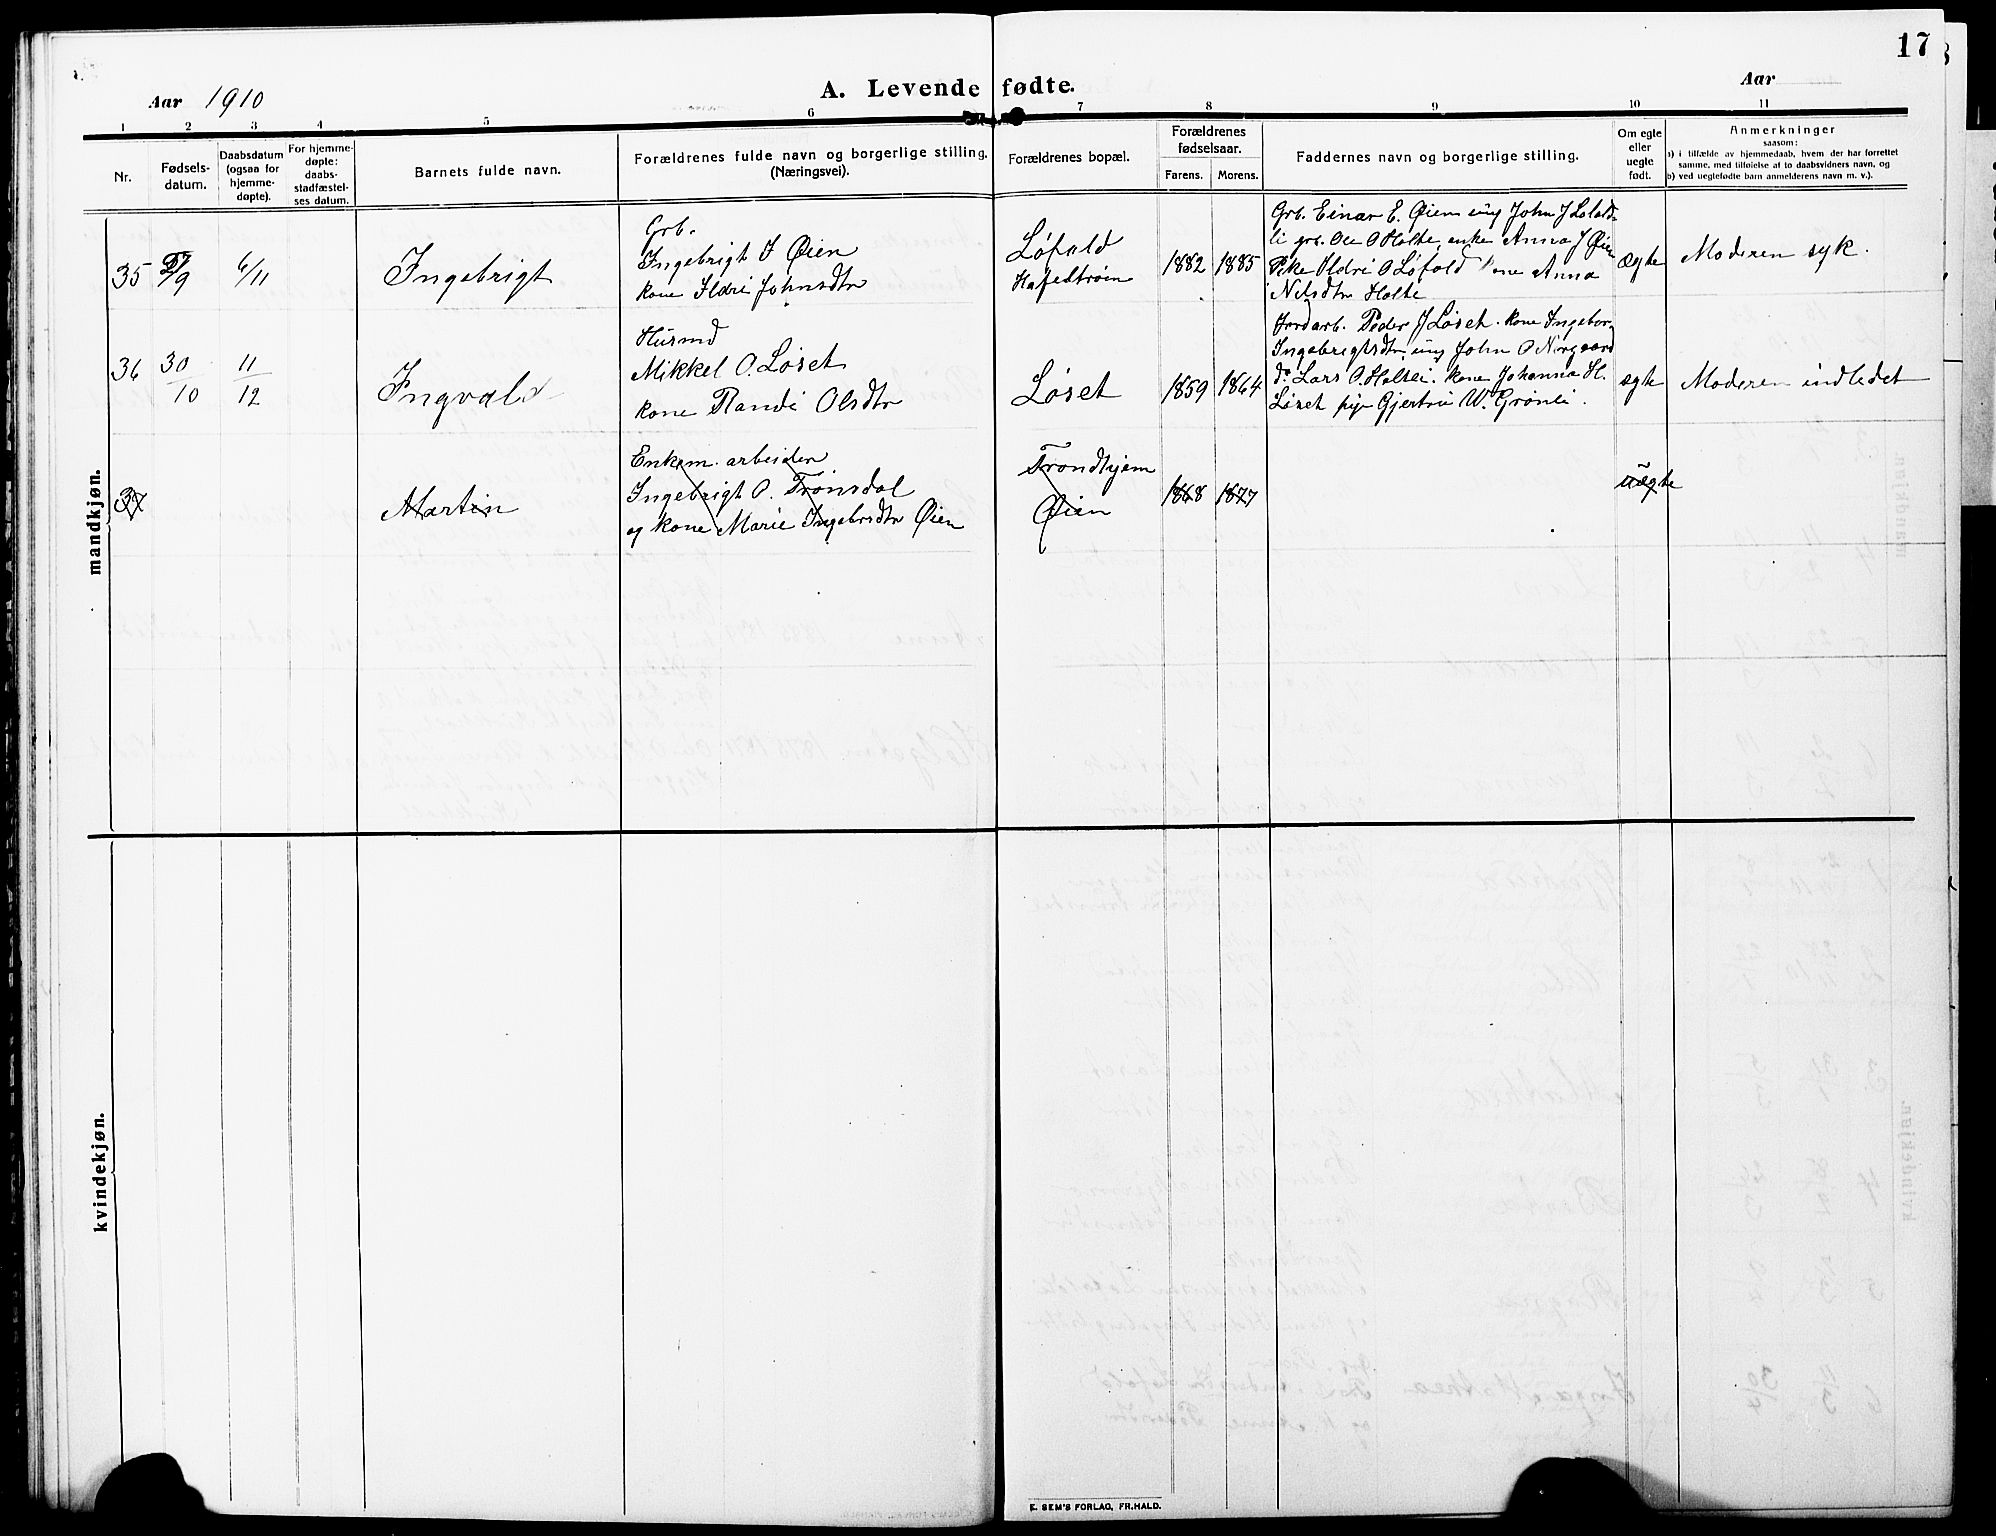 17
Aar 1910
A. Levende fødte.
Aar
1 2 3 4 5 6 7 8 9 10 11
Nr.
Fødsels-
datum.
Daabsdatum
(ogsaa for
hjemme-
døpte).
For hjemme-
døpte:
daabs-
stadfæstel-
ses datum.
Barnets fulde navn.
Forældrenes fulde navn og borgerlige stilling.
(Næringsvei).
Forældrenes bopæl.
Forældrenes
fødselsaar.
Farens. Morens.
Faddernes navn og borgerlige stilling.
Om egte
eller
uegte
født.
Anmerkninger
saasom:
a) i tilfælde av hjemmedaab, hvem der har forrettet
samme, med tilføielse af to daabsvidners navn, og
b) ved uegtefødte barn anmelderens navn m. v.).
mandkjøn.
35
6/11
Ingebrigt
Grb.
Ingebrigt J Øien
kone Ildri Johnsdtr
Løfald
1882 1885
Grb. Einar E. Øien ung John J Lofald-
li grb. Ole O Holte, enke Anna J Øien
Pike Ildri O Løfald kone Anna
Nilsdtr Holte
Ægte
Moderen syk.
36
30/10
11/12
Ingvald
Husmd
Mikkel O. Løset
kone Randi Olsdtr
Løset
1859 1864
Jordarb. Peder J Løset. kone Ingebor
Ingebrigtsdtr, ung John O Norgaard
do Lars O. Holsei. kone Johanna H.
Løset pige Gjertrui W. Grønli.
egte
Moderen indledet
37
Martin
Enkem. arbeider
Ingebrigt O. Trønsdal
og kone Marie Ingebrsdtr Øien
Trondhjem
Øien
1868 1877
uegte
kvindekjøn.
E. SEM'S FORLAG, FR.HALD.